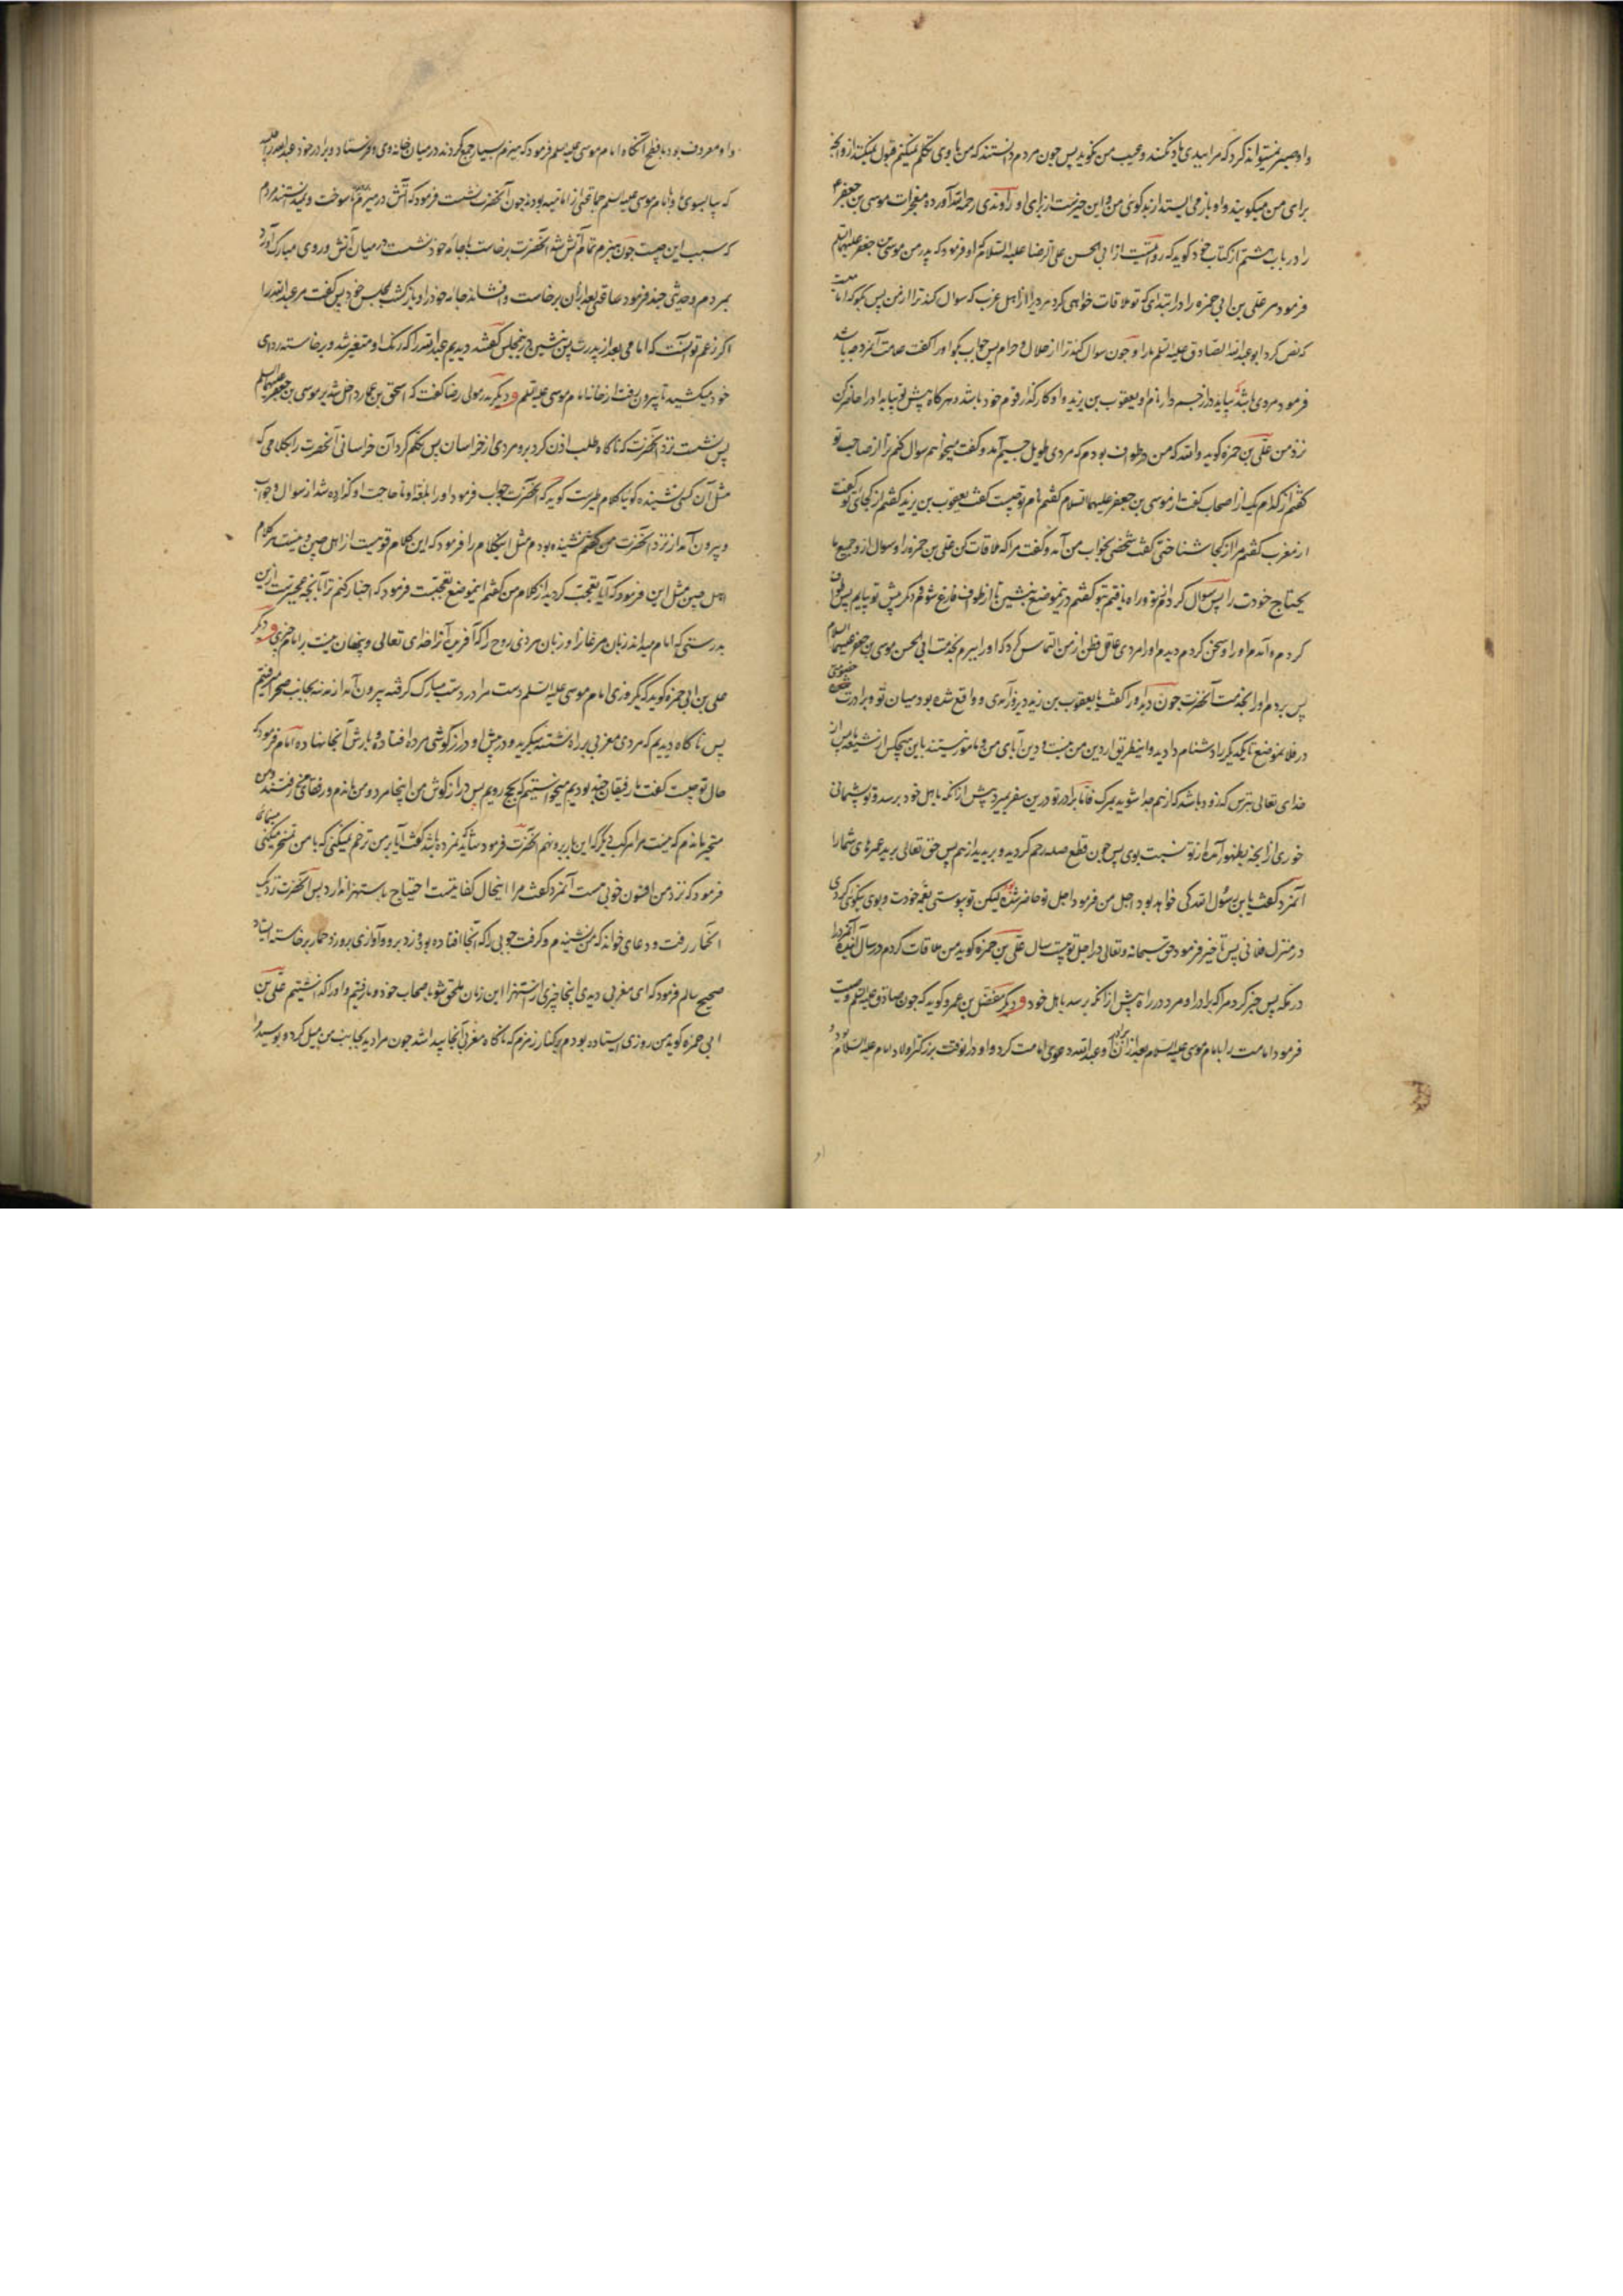 برای من میکویند و او باز می ایستد از بدکوئی من و این خیرست از برای او راوندی رحمه الله آورده معجزات موسی بن جعفر
را در باب هشتم از کتاب خود کوید که روایتست از ابی الحسن علی الرضا علیه السلام که او فرمود که پدر من موسی بن جعفر علیهما السلم
فرمود مر علی بن ابی حمزه را در ابتدای که تو ملاقات خواهی کرد مردیرا از اهل مغرب که سوال کند ترا از من پس بکو که امامیست
که نص کرد ابو عبد الله الصادق علیه السلم مارا و چون سوال کند ترا از حلال و حرام پس جواب بکو او را کفت علامت آنمرد چه باشد
فرمود مردی باشد دراز جسم دار نام او یعقوب بن یزید و او کارکذار قوم خود باشد و هرکاه پیش تو بیاید او را حاضر کن
نزد من علی بن حمزه کوید والله که من در طواف بودم که مردی طویل جسیم آمد و کفت میخواهم سوال کنم ترا از صاحب تو
کفتم از کدام یک از اصحاب کفت از موسی بن جعفر علیهما السلام کفتم نام تو چیست کفت یعقوب بن یزید کفتم از کجائی تو کفت
از مغرب کفتم مرا از کجا شناختی کفت شخصی بخواب من آمد و کفت مرا که ملاقات کن علی بن حمزه را و سوال از و جمیع ما
یحتاج خودت را پس سوال کردم تورا و راه یافتم بتو کفتم درینموضع بنشین تا از طواف فارغ شوم دیکر پیش تو بیایم پس طواف
کردم و آمدم او را و سخن کردم دیدم او را مردی عاقل فطن از من التماس کرد که او را ببرم بخدمت ابی الحسن موسی بن جعفر علیهما السلام
پس بردم او را بخدمت آنحضرت چون دید او را کفت یا یعقوب بن یزید دیروز آمدی و واقع شده بود میان تو و برادرت خصومتی
در فلانموضع تا یکدیکر را دشنام دادید و اینطریق از دین من نیست و دین آبای من و مامور نیستند باین هیچکس از شیعه ما پس از
خدای تعالی بترس که زود باشد که از هم جدا شوید بمرک فاما برادر تو درین سفر بمیرد پیش از آنکه باهل خود برسد و تو پشیمانی
خوری از آنچه بظهور آمده از تو نسبت بوی پس چون قطع صله رحم کردید و بریدید از هم پس حق تعالی برید عمرهای شما را
آنمرد کفت یابن رسول الله کی خواهد بود اجل من فرمود اجل تو حاضر شده لیکن تو پیوستی بعمه خودت و بوی نیکوئی کردی
در منزل فلانی پس تاخیر فرمود حق سبحانه و تعالی در اجل تو بیست سال علی بن حمزه کوید من ملاقات کردم در سال آینده آنمرد را
در مکه پس خبر کرد مرا که برادر او مرد در راه پیش از آنکه برسد باهل خود و دیکر مفضل بن عمرو کوید که چون صادق علیه السلم وصیت
فرمود امامت را بامام موسی علیه السلام بعد از آن برادر او عبد الله دعوی امامت کرد و او در انوقت بزرکتر اولاد امام علیه السلام بود
او
و او معروف بود بافطح آنکاه امام موسی علیه السلم فرمود که هیزم بسیار جمع کردند در میان خانه وی و فرستاد و برادر خود عبد الله را طلبید
که بیا بسوی ما و با امام موسی علیه السلم جماعتی از امامیه بودند چون آنحضرت بنشست فرمود که آتش در هیزم تمام سوخت و نمیدانستند مردم
که سبب این چیست چون هیزم تمام آتش شد آنحضرت برخاست با جامه خود نشست در میان آتش و روی مبارک آورد
بمردم و حدیثی چند فرمود ساعتی بعد از آن برخاست و افشاند جامه خود را و باز کشت بمجلس خود پس کفت مر عبد الله را
اکر زعم تو اینست که امامی بعد از پدرت پس بنشین در مجلس کفتند دیدیم عبد الله را که رنک او متغیر شد و برخاست ردای
خود میکشید تا بیرون رفت از خانه امام موسی علیه السلم و دیکر بدر مولی رضا کفت که اسحق بن عمار داخل شد بر موسی بن جعفر علیهما السلم
پس نشست نزد آنحضرت که ناکاه طلب اذن کرد برو مردی از خراسان پس تکلم کرد آن خراسانی آنحضرت را بکلامی که
مثل آن کسی نشنیده کویا کلام طیرست کوید که آنحضرت جواب فرمود او را بلغة او تا حاجت او کذارده شد از سوال و جواب
و بیرون آمد از نزد آنحضرت من کفتم نشنیده بودم مثل اینکلام را فرمود که این کلام قومیست از اهل چین و نیست هر کلام
اهل چین مثل این فرمود که آیا تعجب کردید از کلام من کفتم اینموضع تعجبست فرمود که اخبار کنم ترا بآنچه عجبترست ازین
بدرستی که امام میداند زبان مرغانرا و زبان هر ذی روح را که آفریده آنرا خدای تعالی و پنهان نیست بر امام چیزی و دیکر
علی بن ابی حمزه کوید که یکروزی امام موسی علیه السلم دست مرا در دست مبارک کرفته بیرون آمد از مدینه بجانب صحرا میرفتیم
پس ناکاه دیدیم که مردی مغربی بر راه نشسته میکرید و در پیش او درازکوشی مرده افتاده و بارش آنجا نهاده امام فرمود که
حال تو چیست کفت با رفیقان خود بودیم میخواستیم که بحج رویم پس درازکوش من اینجا مرد و من ماندم و رفقای من رفتند و من
متحیر مانده ام که نیست مرا مرکب دیکر که این بار برو نهم آنحضرت فرمود شاید که نمرده باشد کفت آیا بر من ترحم نمیکنی که با من تمسخر میکنی
فرمود که نزد من افسون خوبی هست آنمرد کفت مرا اینحال کفایتست احتیاج باستهزا ندارد پس آنحضرت نزدیک
آنحمار رفت و دعای خواند که من نشنیدم و کرفت چوبی را که آنجا افتاده بود و زد برو و آوازی برو زد حمار برخاسته ایستاد
صحیح سالم فرمود که ای مغربی دیدی اینجا چیزی از استهزا این زمان ملحق شو باصحاب خود و ما رفتیم و او را کذاشتیم علی بن
ابی حمزه کوید من روزی ایستاده بودم بر کنار زمزم که ناکاه مغربی آنجا پیدا شد چون مرا دید بجانب من میل کرد و بوسید